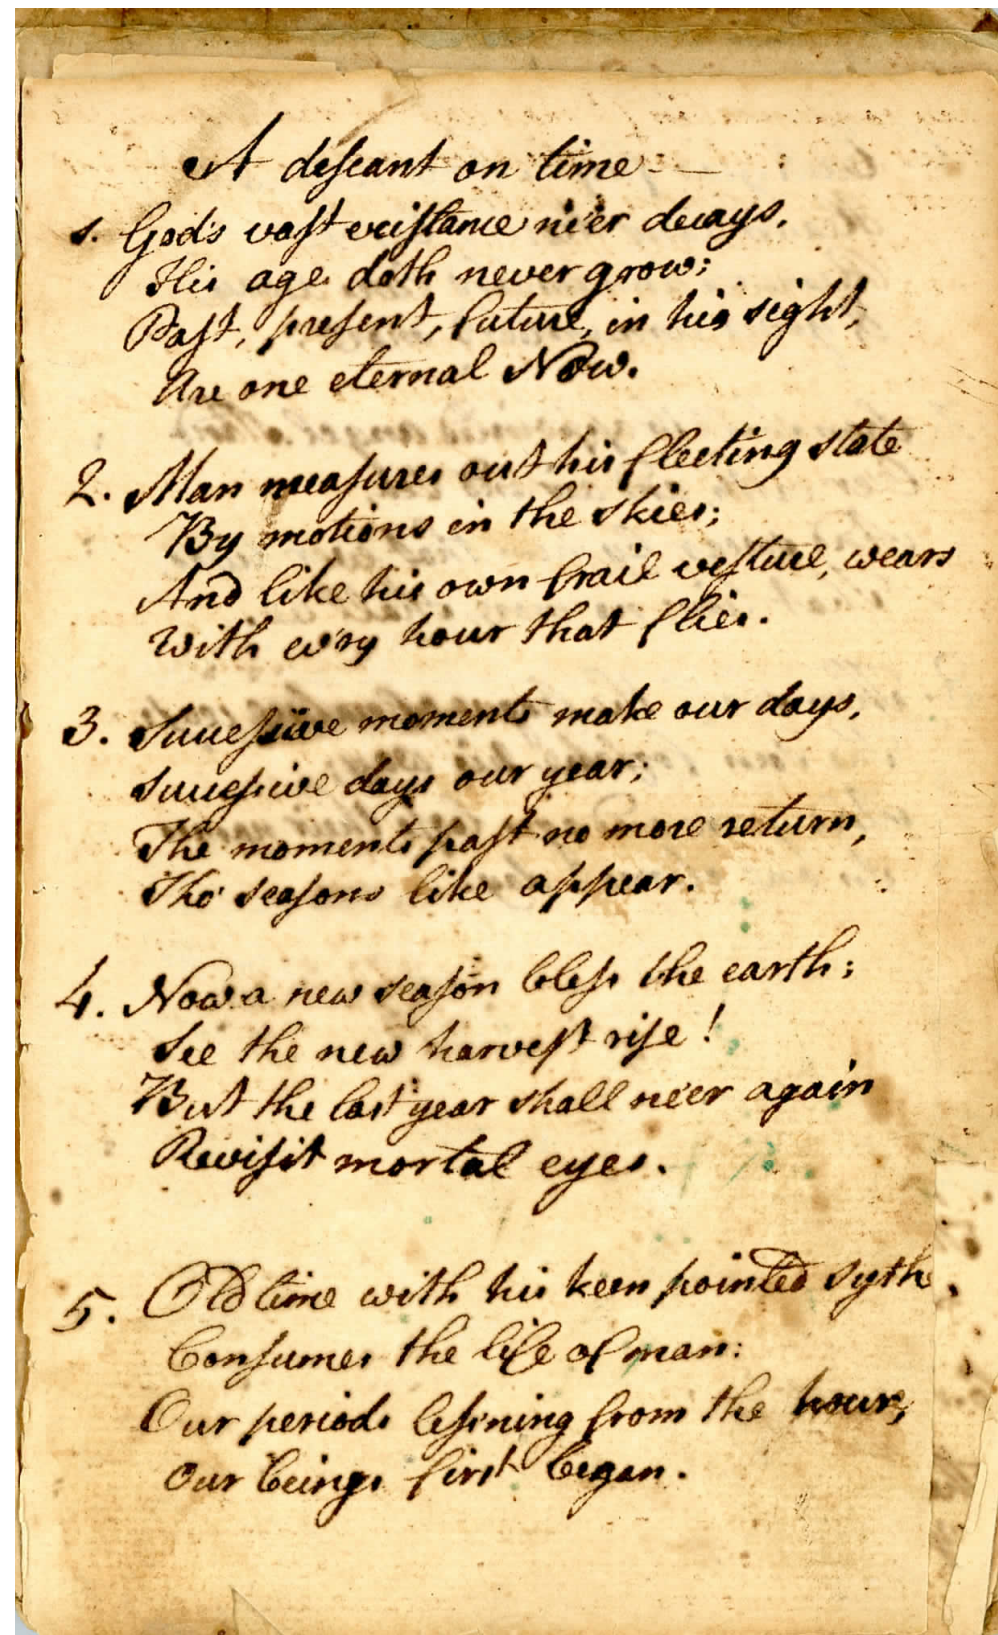 A descant on time
1. God's vast existance ne'er decays.
His age doth never grow;
Past, present, future, in his sight,
Are one eternal Now.
2. Man measures out his fleeting state
By motions in the skies;
And like his own frail vesture, wears
With ev'ry hour that flies.
3. Successive moments make our days,
Successive days our year;
The moments past no more return,
Tho' seasons like appear.
4. Now a new season bless the earth;
See the new harvest rise!
But the last year shall ne'er again
Revisit mortal eyes.
5. Old time with his keen pointed sythe,
Consumes the life of man:
Our periods lessning from the hour,
Our beings first began.